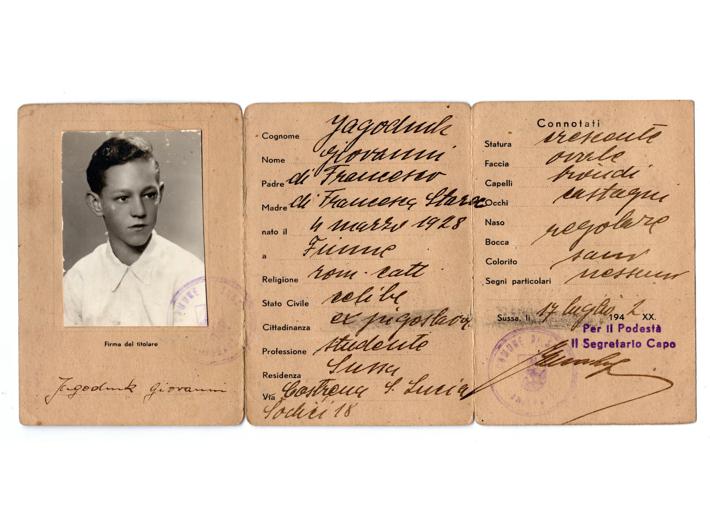 Firma del titolare
Jagodnik Giovanni
Cognome Jagodnik
Nome Giovanni
Padre di Francesco
Madre di Francesca
nato il 4 marzo 1928
a Fiume
Religione rom. catt
Stato Civile celibe
Cittadinanza ex jugoslava
Professione studente
Residenza Sussa
Via Costrena S. Lucia
18
Connotati
Statura crescente
Faccia ovale
Capelli biondi
Occhi castagni
Naso regolare
Bocca
Colorito sano
Segni particolari nessun
Sussa, li 17 luglio 1942 XX.
Per il Podestà
Il Segretario Capo